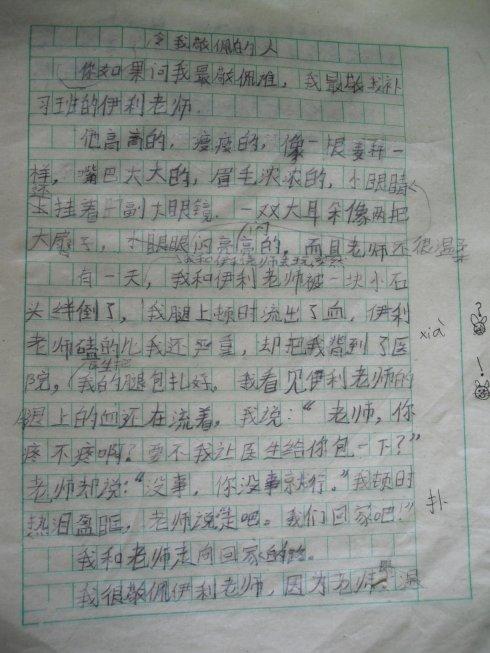 令我敬佩的个人
你如果问我最敬佩谁，我最敬我补
习班的伊利老师.
他高高的，瘦瘦的，像一根麦秆一
样，嘴巴大大的，眉毛浓浓的，小眼睛
上挂着一副大眼镜，一双大耳朵像两把
大扇子，小眼眼闪亮亮的，而且老师还很温柔
有一天，我和伊利老师被一块小石
头绊倒了，我腿上顿时流出了血，伊利
老师磕的比我还严重，却把我背到了医
xià
院，我的腿包扎好。我看见伊利老师的
腿上的血还在流着，我说：“老师，你
疼不疼啊？要不我让医生给你包一下？”
老师却说：“没事，你没事就行。”我顿时
热泪盈眶，老师说走吧。我们回家吧！”
扑
我和老师走向回家的路。
我很敬佩伊利老师，因为老师温